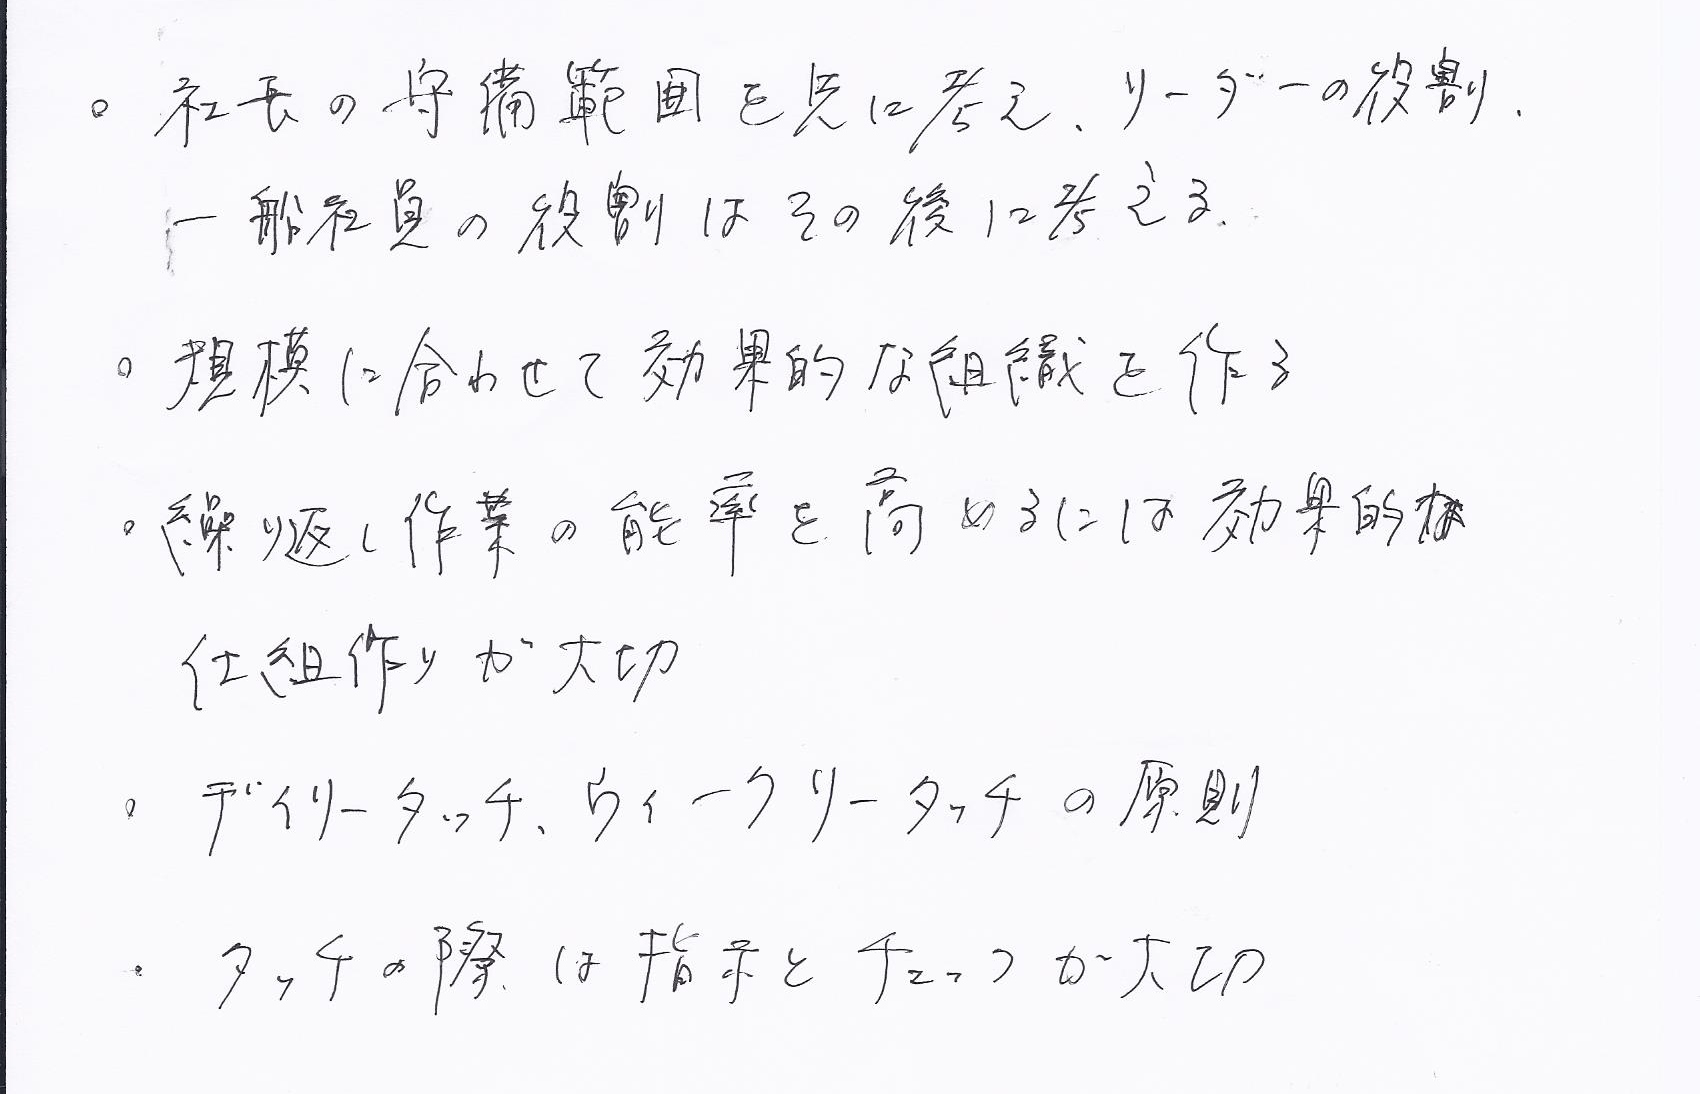 。社長の守備範囲を先に考え、リーダーの役割、
一般社員の役割はその後に考える.
。規模に合わせて効果的な組織を作る
。繰り返し作業の能率を高めるには効果的な
仕組作りが大切
。デイリータッチ、ウィークリータッチの原則
・タッチの際は指示とチェックが大切